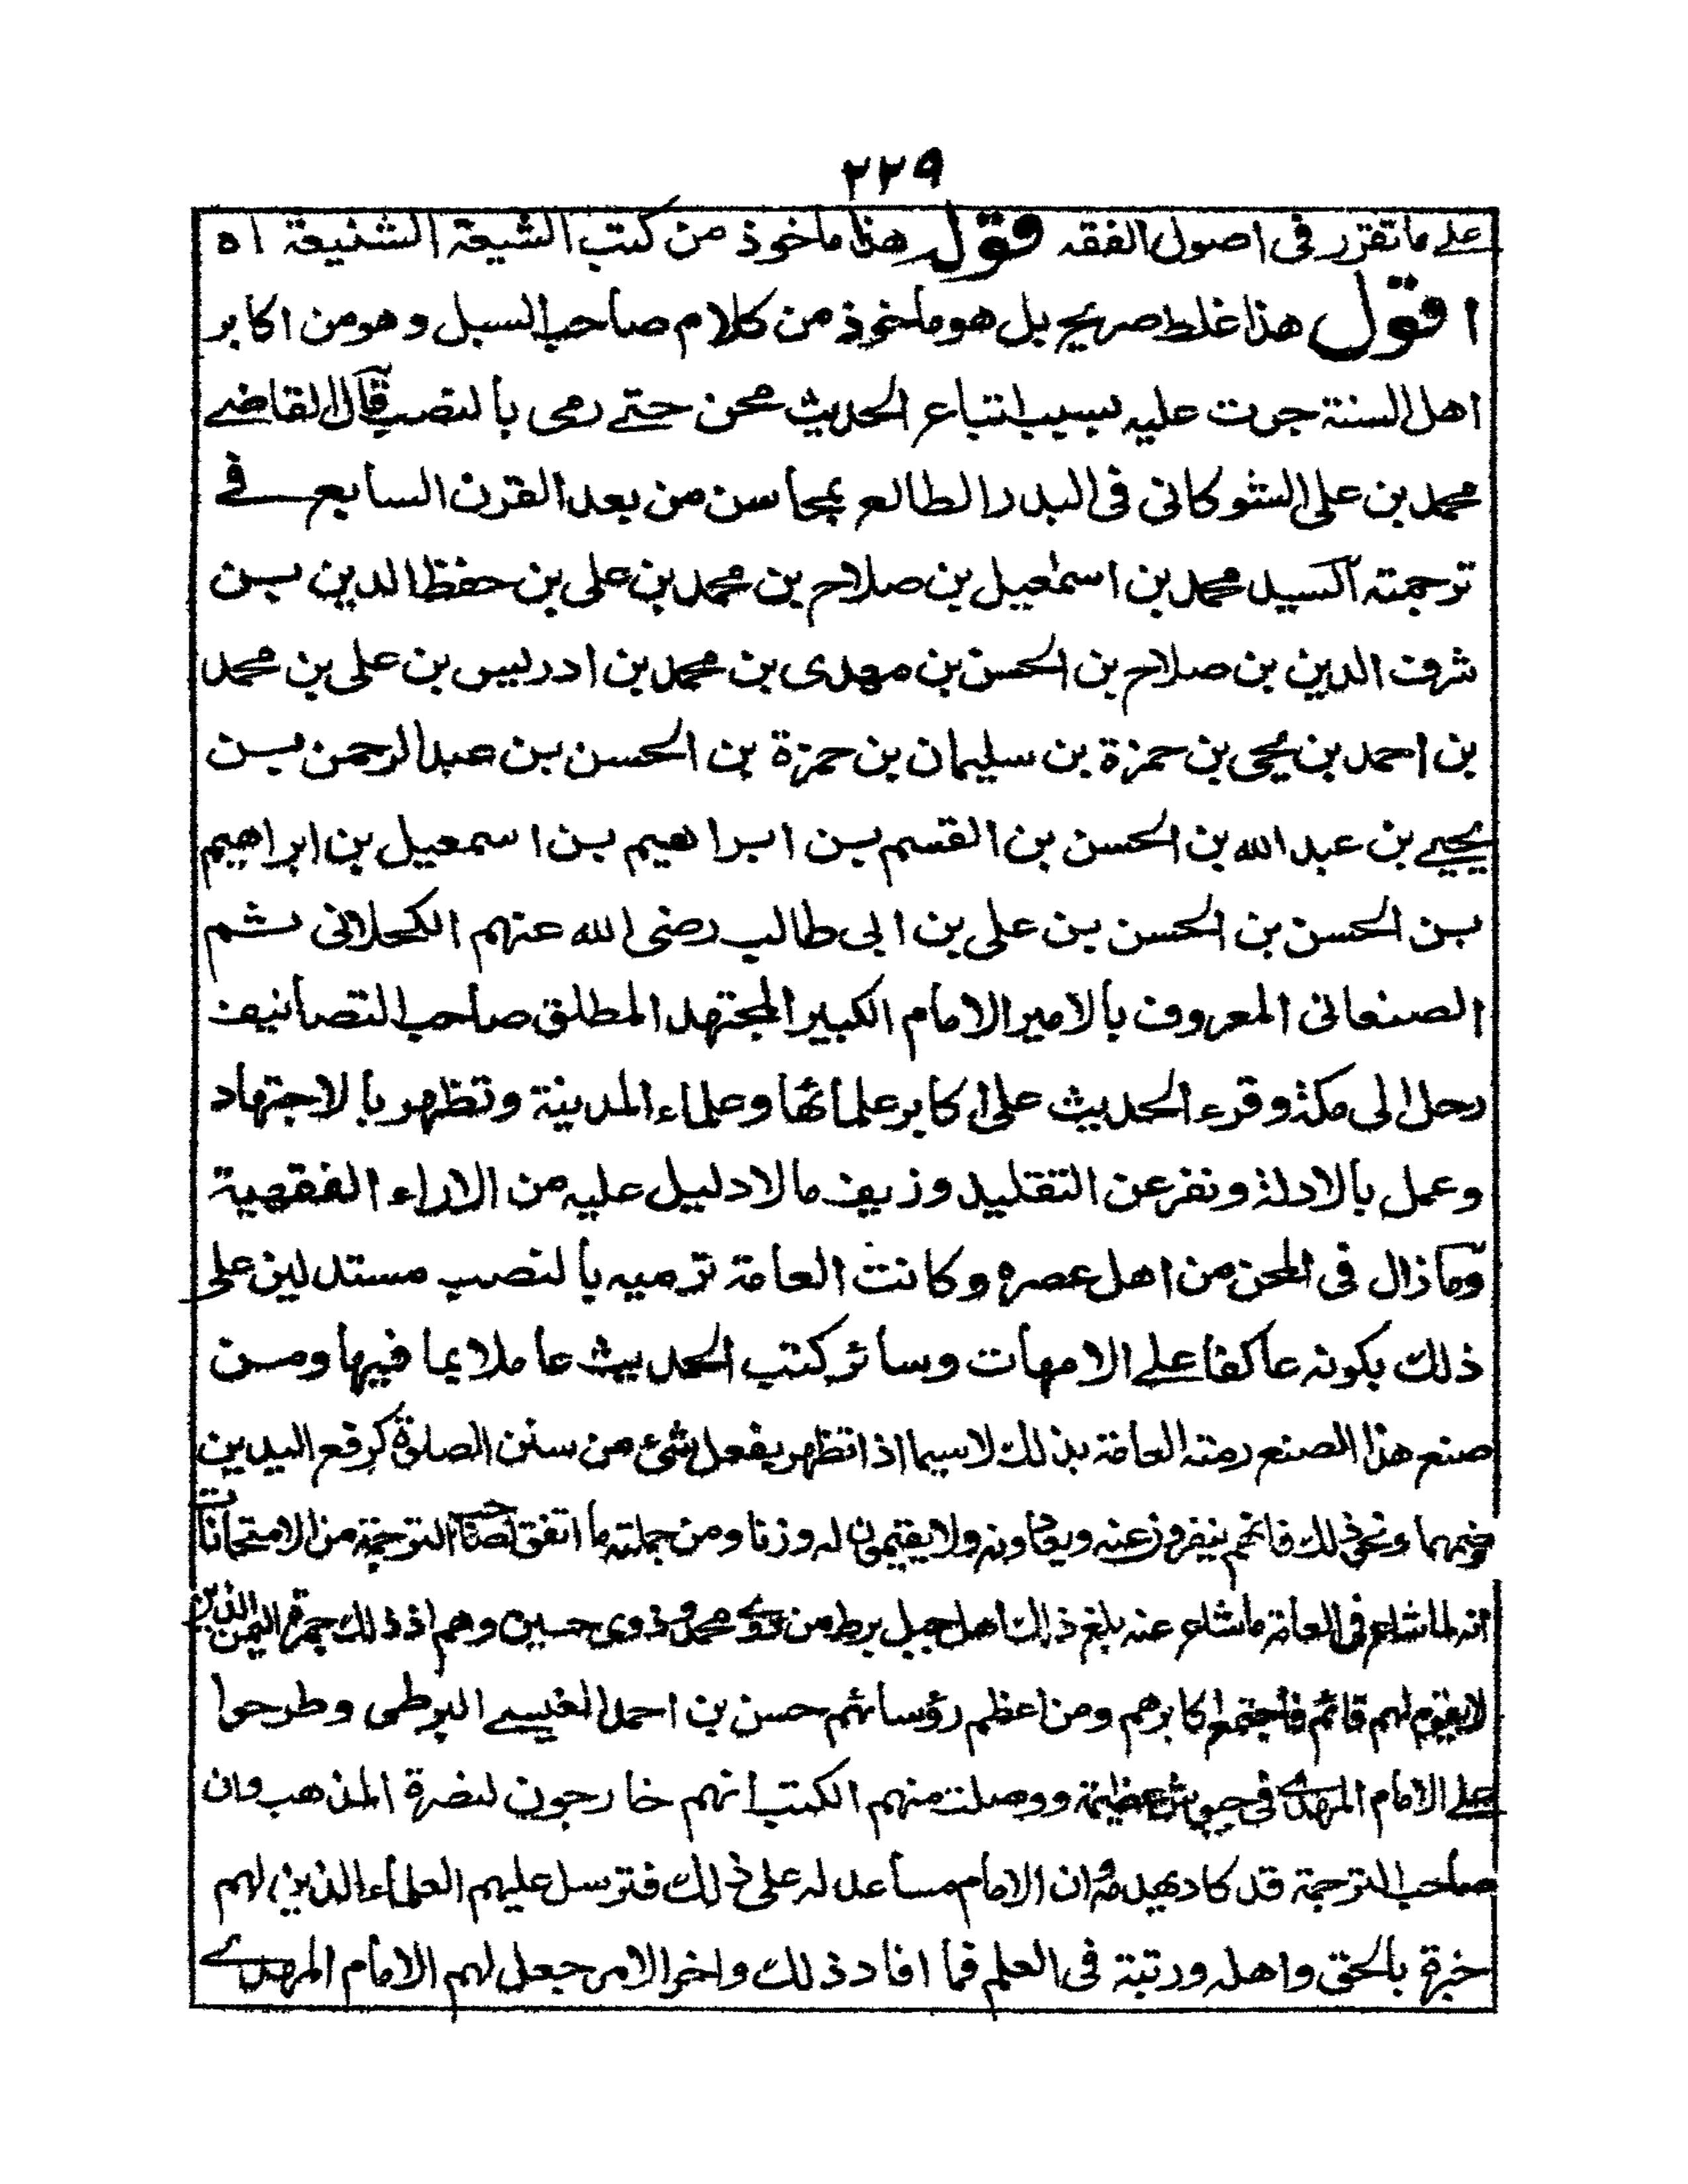 ٢٢٩
على ما تقرر فى اصول الفقه قوله هذا ماخوذ من كتب الشيعة الشنيعة اه
اقول هذا غلط صريح بل هو ماخوذ من كلام صاحب السبل وهو من اكابر
اهل السنة جرت عليه بسبب اتباع الحديث محن حتے رمى بالنصب قال القاضے
محمد بن على الشوكانى فى البدر الطالع بمحاسن من بعد القرن السابع فے
ترجمته السيد محمد بن اسمٰعيل بن صلاح بن محمد بن على بن حفظ الدين بن
شرف الدين بن صلاح بن الحسن بن مهدى بن محمد بن ادريس بن على بن محمد
بن احمد بن يحيى بن حمزة بن سليمان بن حمزة بن الحسن بن عبد الرحمن بن
يحيے بن عبد الله بن الحسن بن القسم بن ابراهيم بن اسمعيل بن ابراهيم
بن الحسن بن الحسن بن على بن ابى طالب رضى الله عنهم الكحلانى ثم
الصنعانى المعروف بالامير الامام الكبير المجتهد المطلق صاحب التصانيف
رحل الى مكة وقرء الحديث على اكابر علمائها وعلماء المدينة وتظهر بالاجتهاد
وعمل بالادلة ونفر عن التقليد وزيف ما لا دليل عليه من الاراء الفقهية
وما زال فى المحن من اهل عصره وكانت العامة ترميه بالنصب مستدلين على
ذلك بكونه عاكفا علے الامهات وسائر كتب الحديث عاملا بما فيها ومن
صنع هذا الصنع رمته العامة بذلك لاسيما اذا تظهر بفعل شىء من سنن الصلوة كرفع اليدين
وضمهما ونحو ذلك فانهم ينفرون عنه ويعادونه ولا يقيمون له وزنا ومن جملته ما اتفق لصاحب الترجمة من الامتحانات
انه لما شاع فى العامة ما شاع عنه بلغ ذلك اهل جبل برط من ذوے محمد وذوى حسين وهم اذ ذلك جمرة اليمن الذين
لا يقوم لهم قائم فاجتمع اكابرهم ومن اعظم رؤسائهم حسن بن احمد العنسے البرطى وطرحوا
علے الامام المهدے فى جيوش عظيمة ووصلت منهم الكتب انهم خارجون لنصرة المذهب وان
صاحب الترجمة قد كاد يهدمه وان الامام مساعد له على ذلك فترسل عليهم العلماء الذين لهم
خبرة بالحق واهله ورتبة فى العلم فما افاد ذلك واخر الامر جعل لهم الامام المهدے